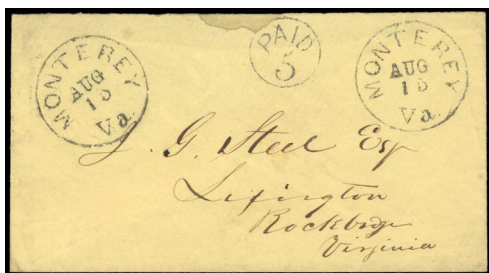 MONTEREY
AUG
15
Va.
PAID
5
MONTEREY
AUG
15
Va.
J. G. Steel Esq
Lexington
Rockbge
Virginia